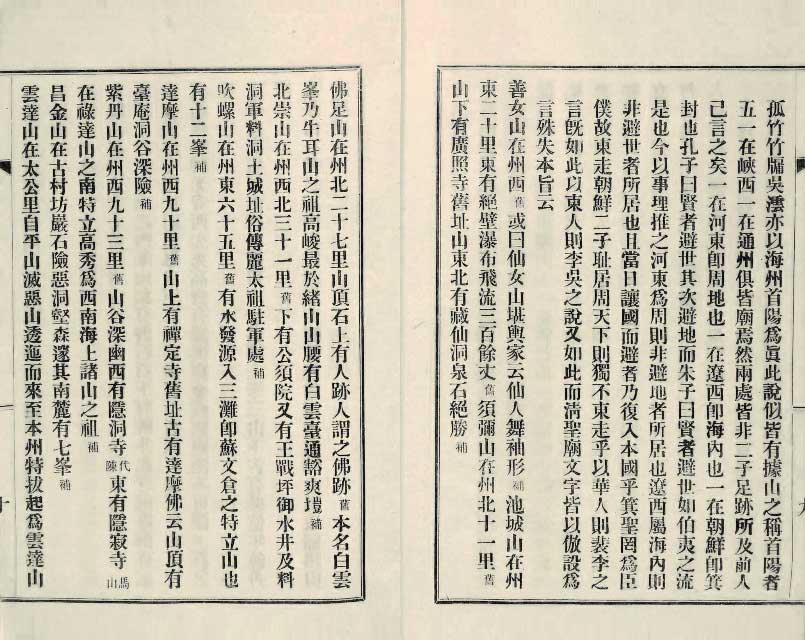 孤竹竹牖吳澐亦以海州首陽爲眞此說似皆有據山之稱首陽者
五一在峽西一在通州俱皆廟焉然兩處皆非二子足跡所及前人
已言之矣一在河東卽周地也一在遼西卽海內也一在朝鮮卽箕
封也孔子曰賢者避世其次避地而朱子曰賢者避世如伯夷之流
是也今以事理推之河東爲周則非避地者所居也遼西屬海內則
非避世者所居也且當日讓國而避者乃復入本國乎箕聖罔爲臣
僕故東走朝鮮二子耻居周天下則獨不東走乎以華人則裴李之
言旣如此以東人則李吳之說又如此而淸聖廟文字皆以倣設爲
言殊失本旨云
善女山在州西舊或曰仙女山堪輿家云仙人舞袖形補池城山在州
東二十里東有絕壁瀑布飛流三百餘丈舊須彌山在州北十一里舊
山下有廣照寺舊址山東北有藏仙洞泉石絕勝補
佛足山在州北二十七里山頂石上有人跡人謂之佛跡舊本名白雲
峯乃牛耳山之祖高峻最於緖山山腰有白雲臺通豁爽塏補
北崇山在州西北三十一里舊下有公須院又有王戰坪御水井及料
洞軍料洞土城址俗傳麗太祖駐軍處補
吹螺山在州東六十五里舊有水發源入三灘卽蘇文倉之特立山也
有十二峯補
達摩山在州西九十里舊山上有禪定寺舊址古有達摩佛云山頂有
臺庵洞谷深險補
紫丹山在州西九十三里舊山谷深幽西有隱洞寺代陳東有隱寂寺馬山
在祿達山之南特立高秀爲西南海上諸山之祖補
昌金山在古村坊巖石險惡洞壑森邃其南麓有七峯補
雲達山在太公里自平山滅惡山透迤而來至本州特拔起爲雲達山